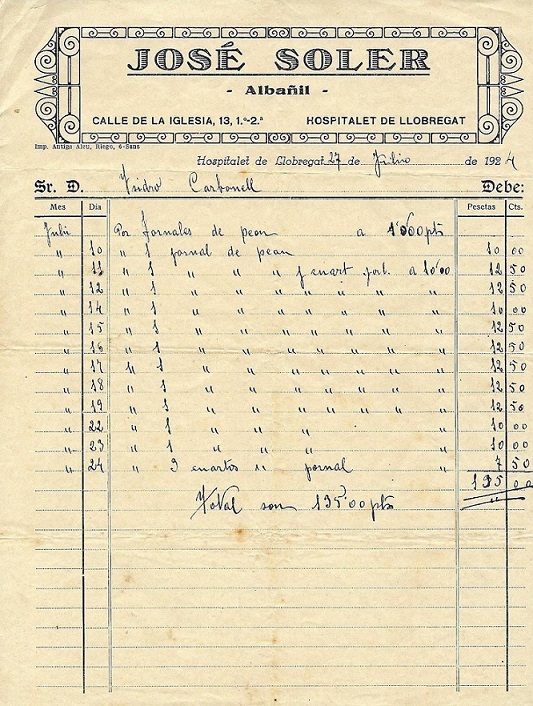 JOSÉ SOLER
- Albañil -
CALLE DE LA IGLESIA, 13, 1.º-2.ª HOSPITALET DE LLOBREGAT
Imp. Antiga Aleu, Riego, 6-Sans
Hospitalet de Llobregat 27 de Julio de 1924
Sr. D. Isidro Carbonell Debe:
Mes Dia Pesetas Cts.
Por Jornales de peon a 10'00 pts
" 10 " 1 jornal de peon 10 00
" 11 " 1 " " " y cuart a 10'00 12 50
" 12 " 1 " " " " " " 12 50
" 14 " 1 " " " " " " 10 00
" 15 " 1 " " " " " " 12 50
" 16 " 1 " " " " " " 12 50
" 17 " 1 " " " " " " 12 50
" 18 " 1 " " " " " " 12 50
" 19 " 1 " " " " " " 12 50
" 22 " 1 " " " " 10 00
" 23 " 1 " " " " 10 00
" 24 " 3 cuartos " jornal " 7 50
135 00
Total son 135'00 pts